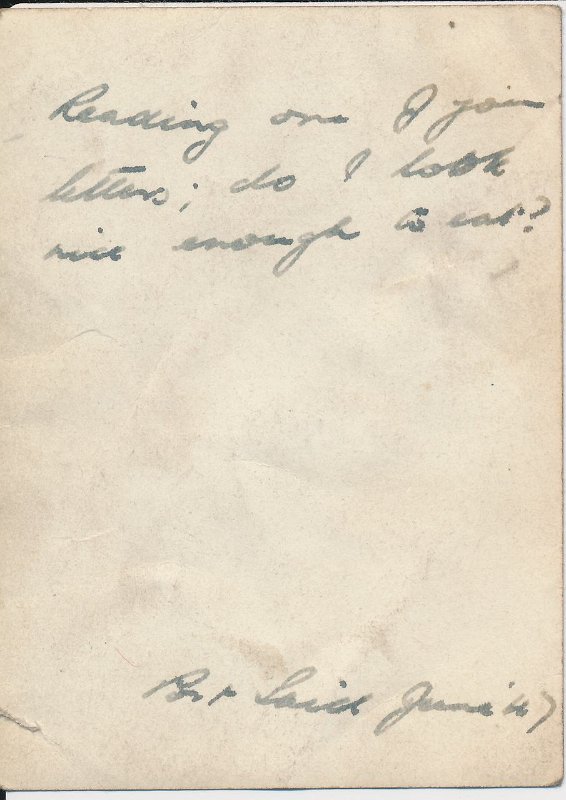 Reading one of your
letters; do I look
nice enough to eat?
Port Said June '47